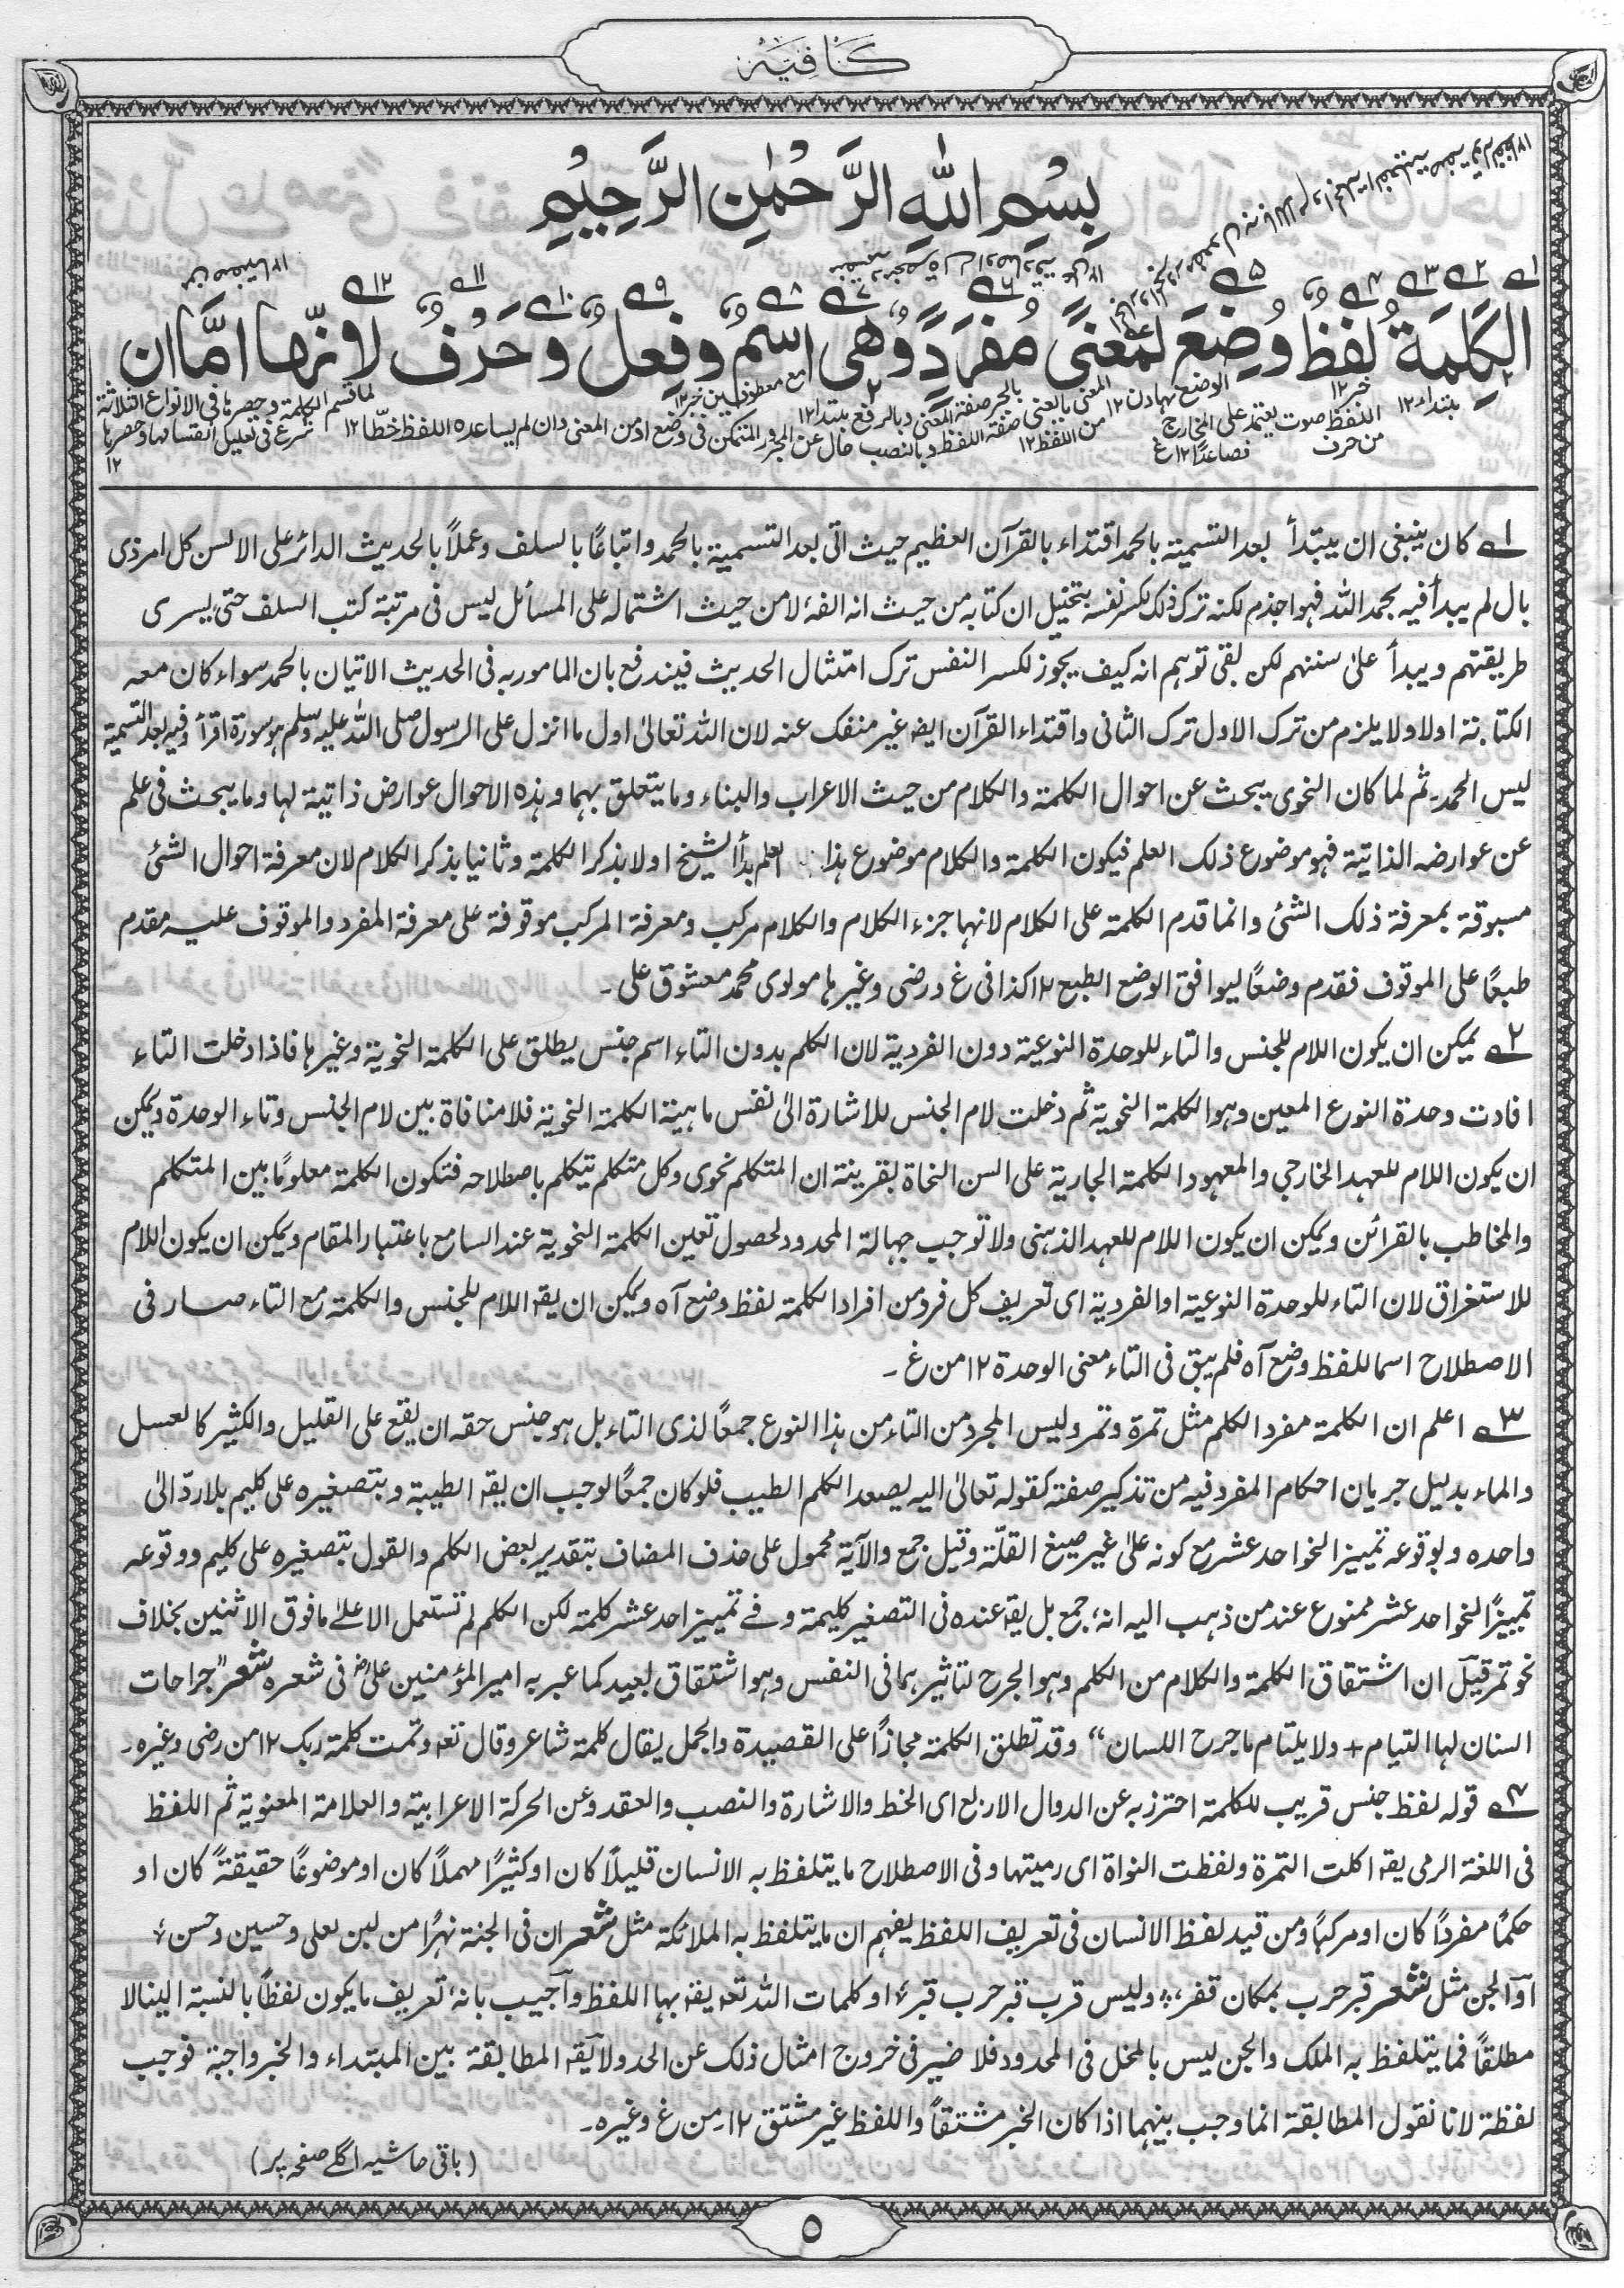 كافية
بِسْمِ اللهِ الرَّحْمٰنِ الرَّحِيْمِ
الكَلِمَةُ لفظٌ وُضِعَ لمعنىً مُفرَدٍ وهى اسمٌ وفِعلٌ وحَرفٌ لانّها امّا ان
مبتداء ١٢ خبر ١٢
اللفظ صوت يعتمد على المخارج
من حرف فصاعدًا ١٢ غ
١ كان ينبغى ان يبتدأ بعد التسمية بالحمد اقتداء بالقرآن العظيم حيث اتى بعد التسمية بالحمد واتباعًا بالسلف وعملاً بالحديث الدائر على الالسن كل امر ذى
بال لم يبدأ فيه بحمد الله فهو اجذم لكنه ترك ذلك لكسر نفسه بتخييل ان كتابه من حيث انه الفه لا من حيث اشتماله على المسائل ليس فى مرتبة كتب السلف حتى يسرى
طريقتهم ويبدأ على سننهم لكن بقى توهم انه كيف يجوز لكسر النفس ترك امتثال الحديث فيندفع بان المامور به فى الحديث الاتيان بالحمد سواء كان معه
الكتابة اولا ولا يلزم من ترك الاول ترك الثانى واقتداء القرآن ايضا غير منفك عنه لان الله تعالىٰ اول ما انزل على الرسول صلى الله عليه وسلم هو سورة اقرأ وفيه بعد التسمية
ليس الحمد۔ ثم لما كان النحوى يبحث عن احوال الكلمة والكلام من حيث الاعراب والبناء وما يتعلق بهما وهذه الاحوال عوارض ذاتية لها وما يبحث فى علم
عن عوارضه الذاتية فهو موضوع ذلك العلم فيكون الكلمة والكلام موضوع هذا العلم بدأ الشيخ اولا بذكر الكلمة وثانيا بذكر الكلام لان معرفة احوال الشئ
مسبوقة بمعرفة ذلك الشئ وانما قدم الكلمة على الكلام لانها جزء الكلام والكلام مركب ومعرفة المركب موقوفة على معرفة المفرد والموقوف عليه مقدم
طبعًا على الموقوف فقدم وضعًا ليوافق الوضع الطبع ١٢ كذا فى غ ورضى وغيرها مولوى محمد معشوق على۔
٢ يمكن ان يكون اللام للجنس والتاء للوحدة النوعية دون الفردية لان الكلم بدون التاء اسم جنس يطلق على الكلمة النحوية وغيرها فاذا دخلت التاء
افادت وحدة النوع المعين وهو الكلمة النحوية ثم دخلت لام الجنس للاشارة الىٰ نفس ماهية الكلمة النحوية فلا منافاة بين لام الجنس وتاء الوحدة ويمكن
ان يكون اللام للعهد الخارجي والمعهود الكلمة الجارية على السن النحاة بقرينة ان المتكلم نحوى وكل متكلم يتكلم باصطلاحه فتكون الكلمة معلومًا بين المتكلم
والمخاطب بالقرائن ويمكن ان يكون اللام للعهد الذهنى ولا توجب جهالة المحدود لحصول تعين الكلمة النحوية عند السامع باعتبار المقام ويمكن ان يكون اللام
للاستغراق لان التاء للوحدة النوعية او الفردية اى تعريف كل فرد من افراد الكلمة لفظ وضع آه ويمكن ان يقه اللام للجنس والكلمة مع التاء صار فى
الاصطلاح اسما للفظ وضع آه فلم يبق فى التاء معنى الوحدة ١٢ من غ۔
٣ اعلم ان الكلمة مفرد الكلم مثل تمرة وتمر وليس المجرد من التاء من هذا النوع جمعًا لذى التاء بل هو جنس حقه ان يقع على القليل والكثير كالعسل
والماء بدليل جريان احكام المفرد فيه من تذكير صفته كقوله تعالىٰ اليه يصعد الكلم الطيب فلو كان جمعًا لوجب ان يقه الطيبة وبتصغيره على كليم بلا ردّ الىٰ
واحده وبوقوعه تمييز النحو احد عشر مع كونه علىٰ غير صيغ القلّة وقيل جمع والآية محمول على حذف المضاف بتقدير بعض الكلم والقول بتصغيره على كليم ووقوعه
تمييزًا لنحو احد عشر ممنوع عند من ذهب اليه انه جمع بل يقه عنده فى التصغير كليمة وفے تمييز احد عشر كلمة لكن الكلم لم تستعمل الا علےٰ ما فوق الاثنين بخلاف
نحو تمر قيل ان اشتقاق الكلمة والكلام من الكلم وهو الجرح لتاثيرهما فى النفس وهو اشتقاق بعيد كما عبر به امير المؤمنين علىؓ فى شعره شعر "جراحات
السنان لها التيام + ولا يلتام ما جرح اللسان" وقد تطلق الكلمة مجازًا على القصيدة والجمل يقال كلمة شاعر وقال تعه وتمت كلمة ربك ١٢ من رضى وغيره۔
٤ قوله لفظ جنس قريب للكلمة احترز به عن الدوال الاربع اى الخط والاشارة والنصب والعقد وعن الحركة الاعرابية والعلامة المعنوية ثم اللفظ
فى اللغة الرمى يقه اكلت التمرة ولفظت النواة اى رميتها وفى الاصطلاح ما يتلفظ به الانسان قليلاً كان او كثيرًا مهملاً كان او موضوعًا حقيقتةً كان او
حكمًا مفردًا كان او مركبًا ومن قيد لفظ الانسان فى تعريف اللفظ يفهم ان ما يتلفظ به الملائكة مثل شعر ان فى الجنة نهرًا من لبن لعلى وحسين وحسن
او الجن مثل شعر قبر حرب بمكان قفر وليس قرب قبر حرب قبر او كلمات الله تعه يقه بها اللفظ واجيب بانه تعريف ما يكون لفظًا بالنسبة الينا لا
مطلقًا فما يتلفظ به الملك والجن ليس بالمخل فى المحدود فلا ضير فى خروج امثال ذلك عن الحد ولا يقه المطابقة بين المبتداء والخبر واجبة فوجب
لفظة لانا نقول المطابقة انما وجب بينهما اذا كان الخبر مشتقاً واللفظ غير مشتق ١٢۔ من غ وغيره۔
(باقى حاشيه اگلے صفحه پر)
٥